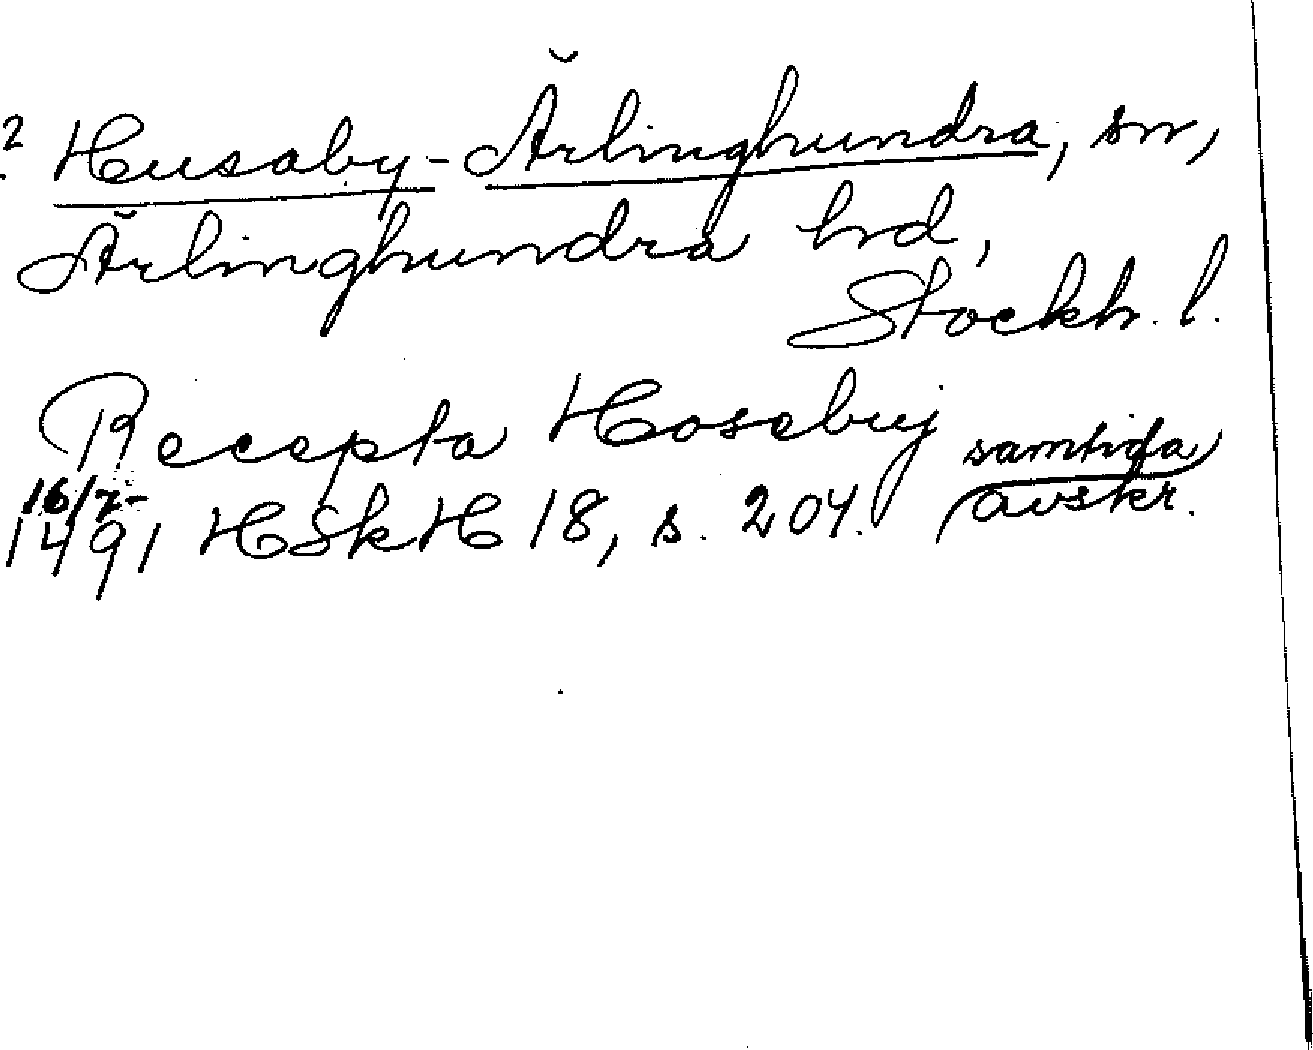 ? Husaby-Ärlinghundra, sn,
Ärlinghundra hd,
Stockh. l.
Recepta Hosebuj samtida
16/7- avskr.
1491 HSkH 18, s. 204.